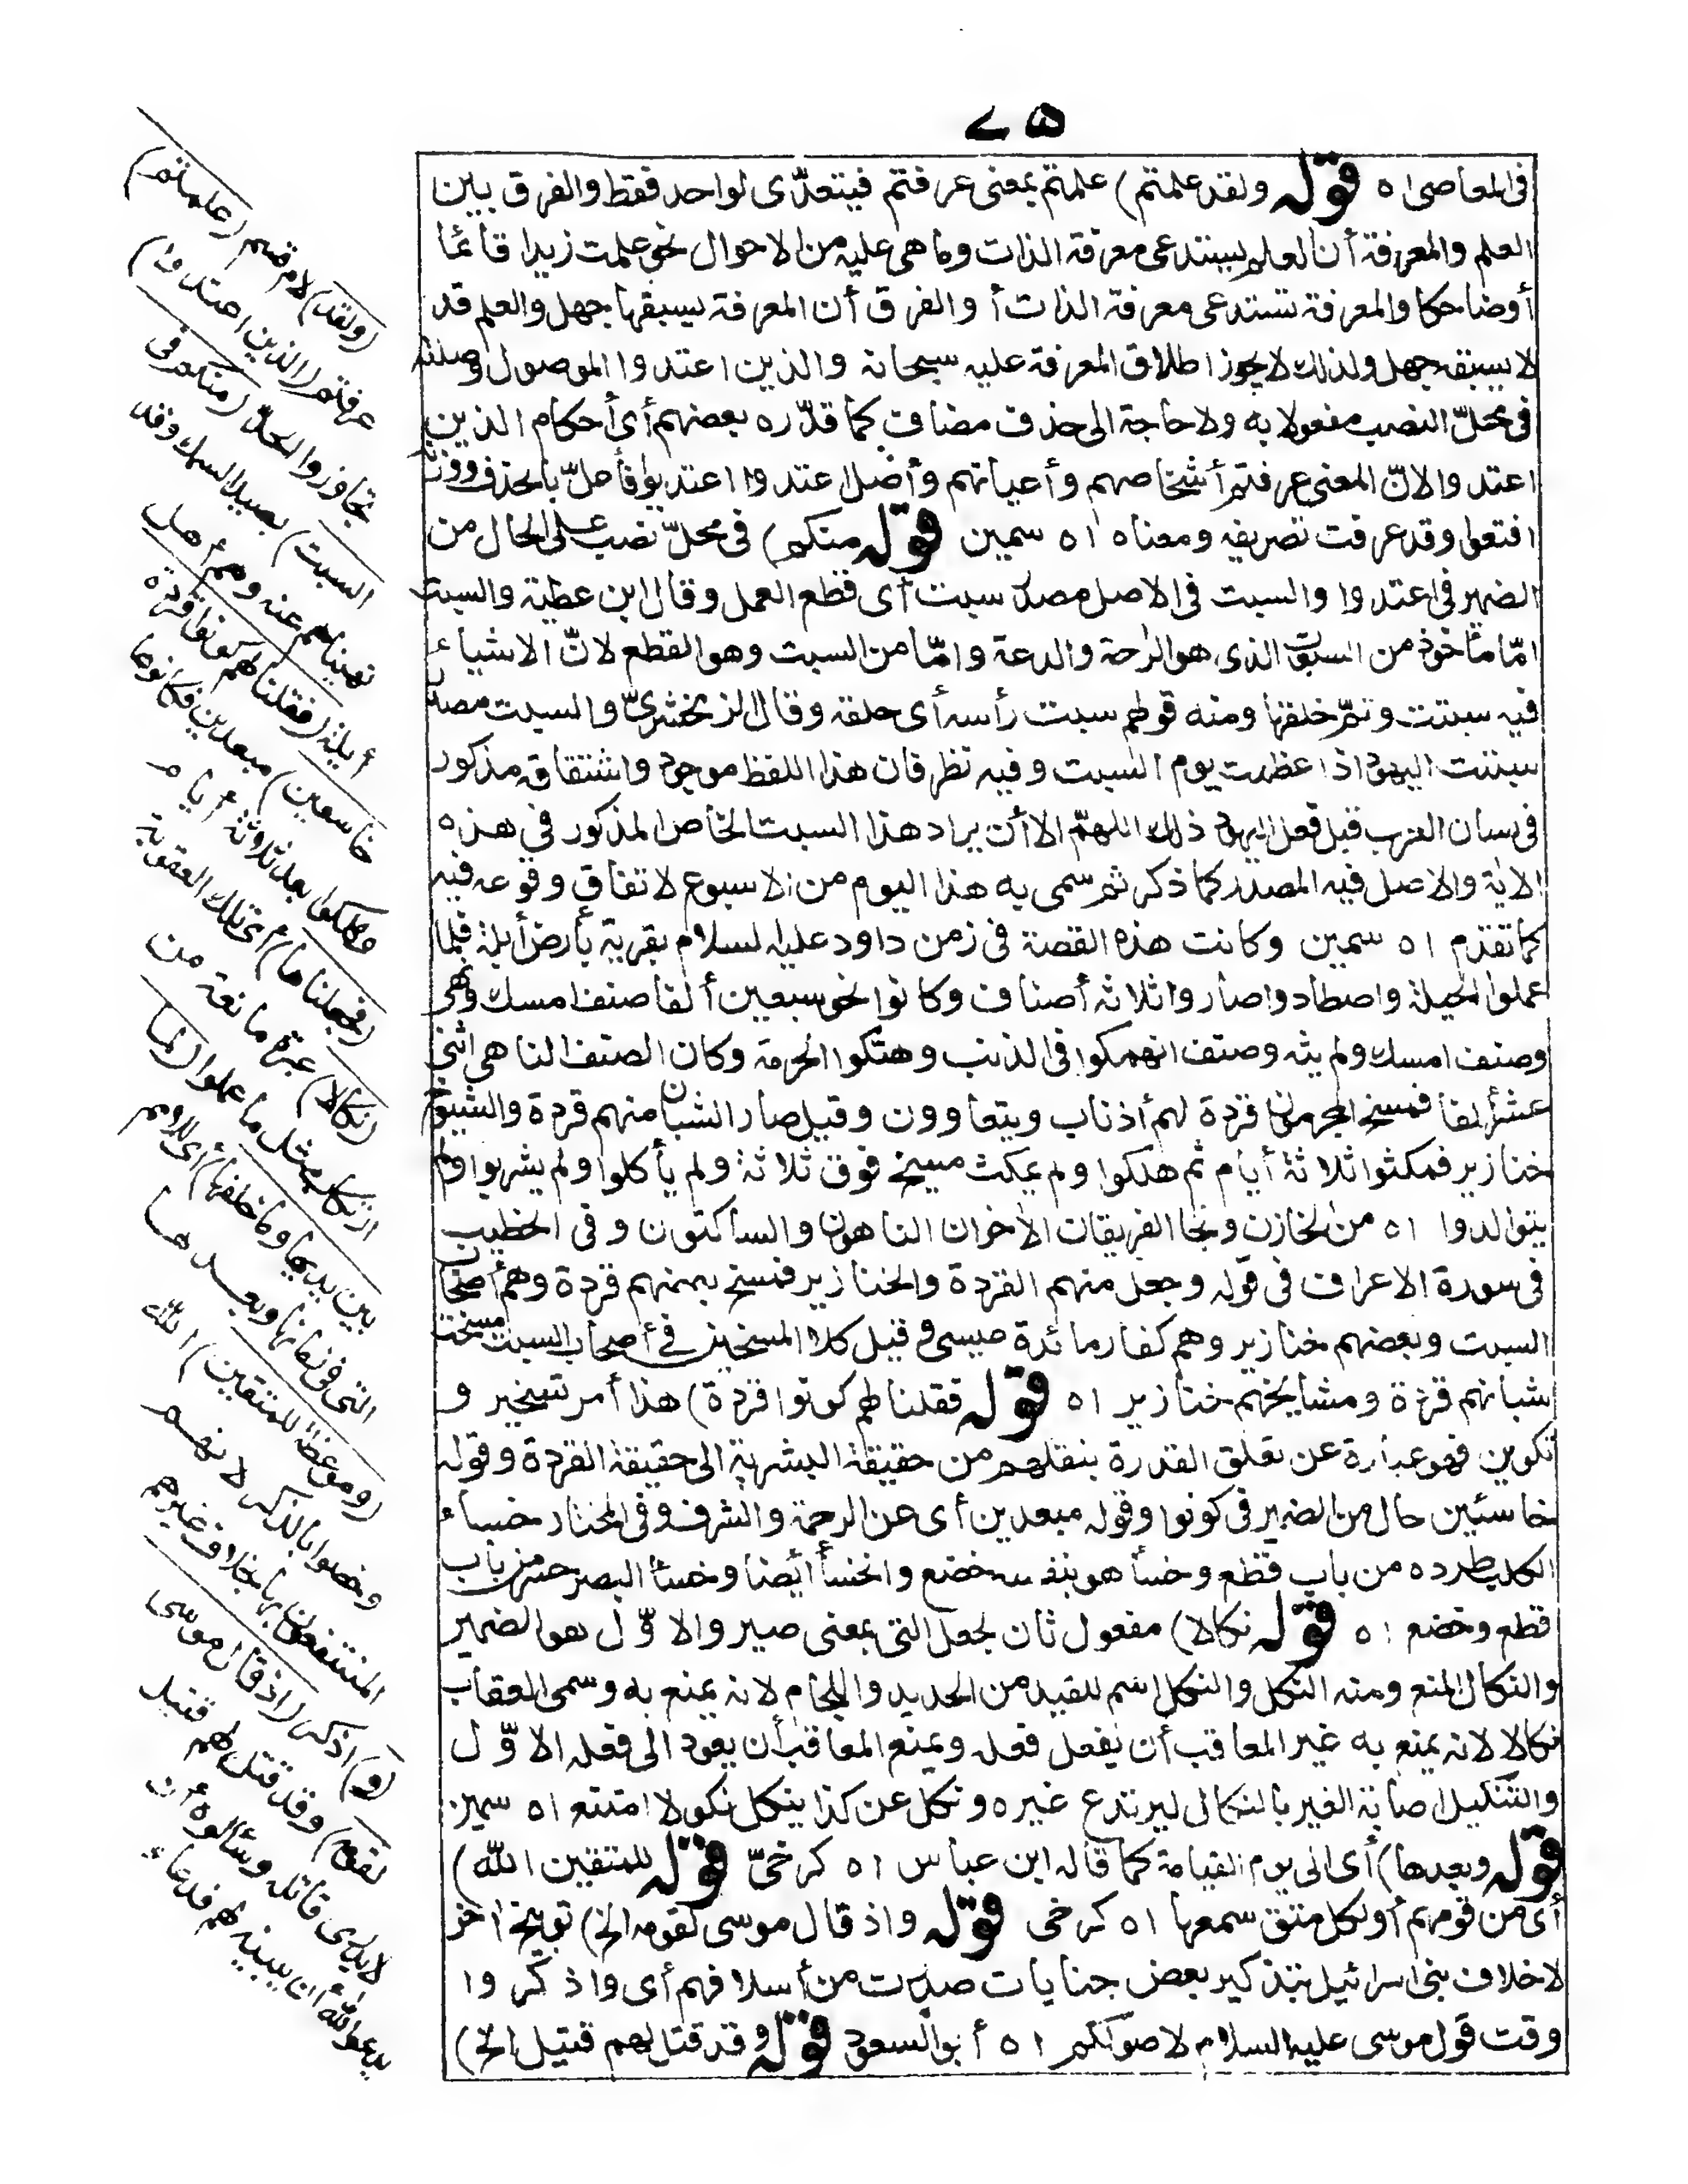 ٧٥
فى المعاصى اه قوله ولقد علمتم) علمتم بمعنى عرفتم فيتعدّى لواحد فقط والفرق بين
العلم والمعرفة أن العلم يستدعى معرفة الذات وما هى عليه من الاحوال نحو علمت زيدا قائما
أو ضاحكا والمعرفة تستدعى معرفة الذات أو الفرق أن المعرفة يسبقها جهل والعلم قد
لا يسبقه جهل ولذلك لا يجوز اطلاق المعرفة عليه سبحانه والذين اعتدوا الموصول وصلته
فى محلّ النصب مفعولا به ولا حاجة الى حذف مضاف كما قدّره بعضهم أى أحكام الذين
اعتدوا لانّ المعنى عرفتم أشخاصهم وأعيانهم وأصل اعتدوا اعتديوا فأعلّ بالحذف ووزنه
افتعوا وقد عرفت تصريفه ومعناه اه سمين قوله منكم) فى محلّ نصب على الحال من
الضمير فى اعتدوا والسبت فى الاصل مصدر سبت أى قطع العمل وقال ابن عطية والسبت
امّا مأخوذ من السبوت الذى هو الراحة والدعة وامّا من السبت وهو القطع لانّ الاشياء
فيه سبتت وتمّ خلقها ومنه قولهم سبت رأسه أى حلقه وقال الزمخشرىّ والسبت مصدر
سبتت اليهود اذا عظمت يوم السبت وفيه نظر فان هذا اللفظ موجود واشتقاقه مذكور
فى لسان العرب قبل فعل اليهود ذلك اللهمّ الا أن يراد هذا السبت الخاص المذكور فى هذه
الاية والاصل فيه المصدر كما ذكر ثم سمى به هذا اليوم من الاسبوع لاتفاق وقوعه فيه
كما تقدّم اه سمين وكانت هذه القصة فى زمن داود عليه السلام بقرية بأرض أيلة فلما
عملوا الحيلة واصطادوا صاروا ثلاثة أصناف وكانوا نحو سبعين ألفا صنف امسك ونهى
وصنف امسك ولم ينه وصنف انهمكوا فى الذنب وهتكوا الحرمة وكان الصنف الناهى اثنى
عشر ألفا فمسخ المجرمون قردة لهم أذناب ويتعاوون وقيل صار الشبان منهم قردة والشيوخ
خنازير فمكثوا ثلاثة أيام ثم هلكوا ولم يمكث مسخ فوق ثلاثة ولم يأكلوا ولم يشربوا ولم
يتوالدوا اه من الخازن ونجا الفريقان الاخران الناهون والساكتون وفى الخطيب
فى سورة الاعراف فى قوله وجعل منهم القردة والخنازير فمسخ بعضهم قردة وهم أصحاب
السبت وبعضهم خنازير وهم كفار مائدة عيسى وقيل كلا المسخين فى أصحاب السبت مسخت
شبانهم قردة ومشايخهم خنازير اه قوله فقلنا لهم كونوا قردة) هذا أمر تسخير و
تكوين فهو عبارة عن تعلق القدرة بنقلهم من حقيقة البشرية الى حقيقة القردة وقوله
خاسئين حال من الضمير فى كونوا وقوله مبعدين أى عن الرحمة والشرف وفى المختار خسأ
الكلب طرده من باب قطع وخسأ هو بنفسه خضع وانخسأ أيضا وخسأ البصر حسر من باب
قطع وخضع اه قوله نكالا) مفعول ثان لجعل التى بمعنى صير والاوّل هو الضمير
والنكال المنع ومنه النكل والنكل اسم للقيد من الحديد واللجام لانه يمنع به وسمى العقاب
نكالا لانه يمنع به غير المعاقب أن يفعل فعله ويمنع المعاقب أن يعود الى فعله الاوّل
والتنكيل اصابة الغير بالنكال ليرتدع غيره ونكل عن كذا ينكل نكولا امتنع اه سمين
قوله وبعدها) أى الى يوم القيامة كما قاله ابن عباس اه كرخىّ قوله للمتقين الله)
أى من قومهم أو لكل متق سمعها اه كرخى قوله واذ قال موسى لقومه الخ) توبيخ اخر
لاخلاف بنى اسرائيل بتذكير بعض جنايات صدرت من أسلافهم أى واذكروا
وقت قول موسى عليه السلام لاصولكم اه أبو السعود قوله وقد قتل لهم قتيل الخ)
(ولقد) لام قسم (علمتم)
عرفتم (الذين اعتدوا)
تجاوزوا الحدّ (منكم فى
السبت) بصيد السمك وقد
نهيناهم عنه وهم أهل
أيلة (فقلنا لهم كونوا قردة
خاسئين) مبعدين فكانوها
وهلكوا بعد ثلاثة أيام
(فجعلناها) أى تلك العقوبة
(نكالا) عبرة مانعة من
ارتكاب مثل ما عملوا (لما
بين يديها وما خلفها) أى للامم
التى فى زمانها وبعدها
(وموعظة للمتقين) الله
وخصوا بالذكر لانهم
المنتفعون بها بخلاف غيرهم
(و) اذكر (اذ قال موسى
لقومه) وقد قتل لهم قتيل
لا يدرى قاتله وسألوه أن
يدعو الله أن يبينه لهم فدعاه